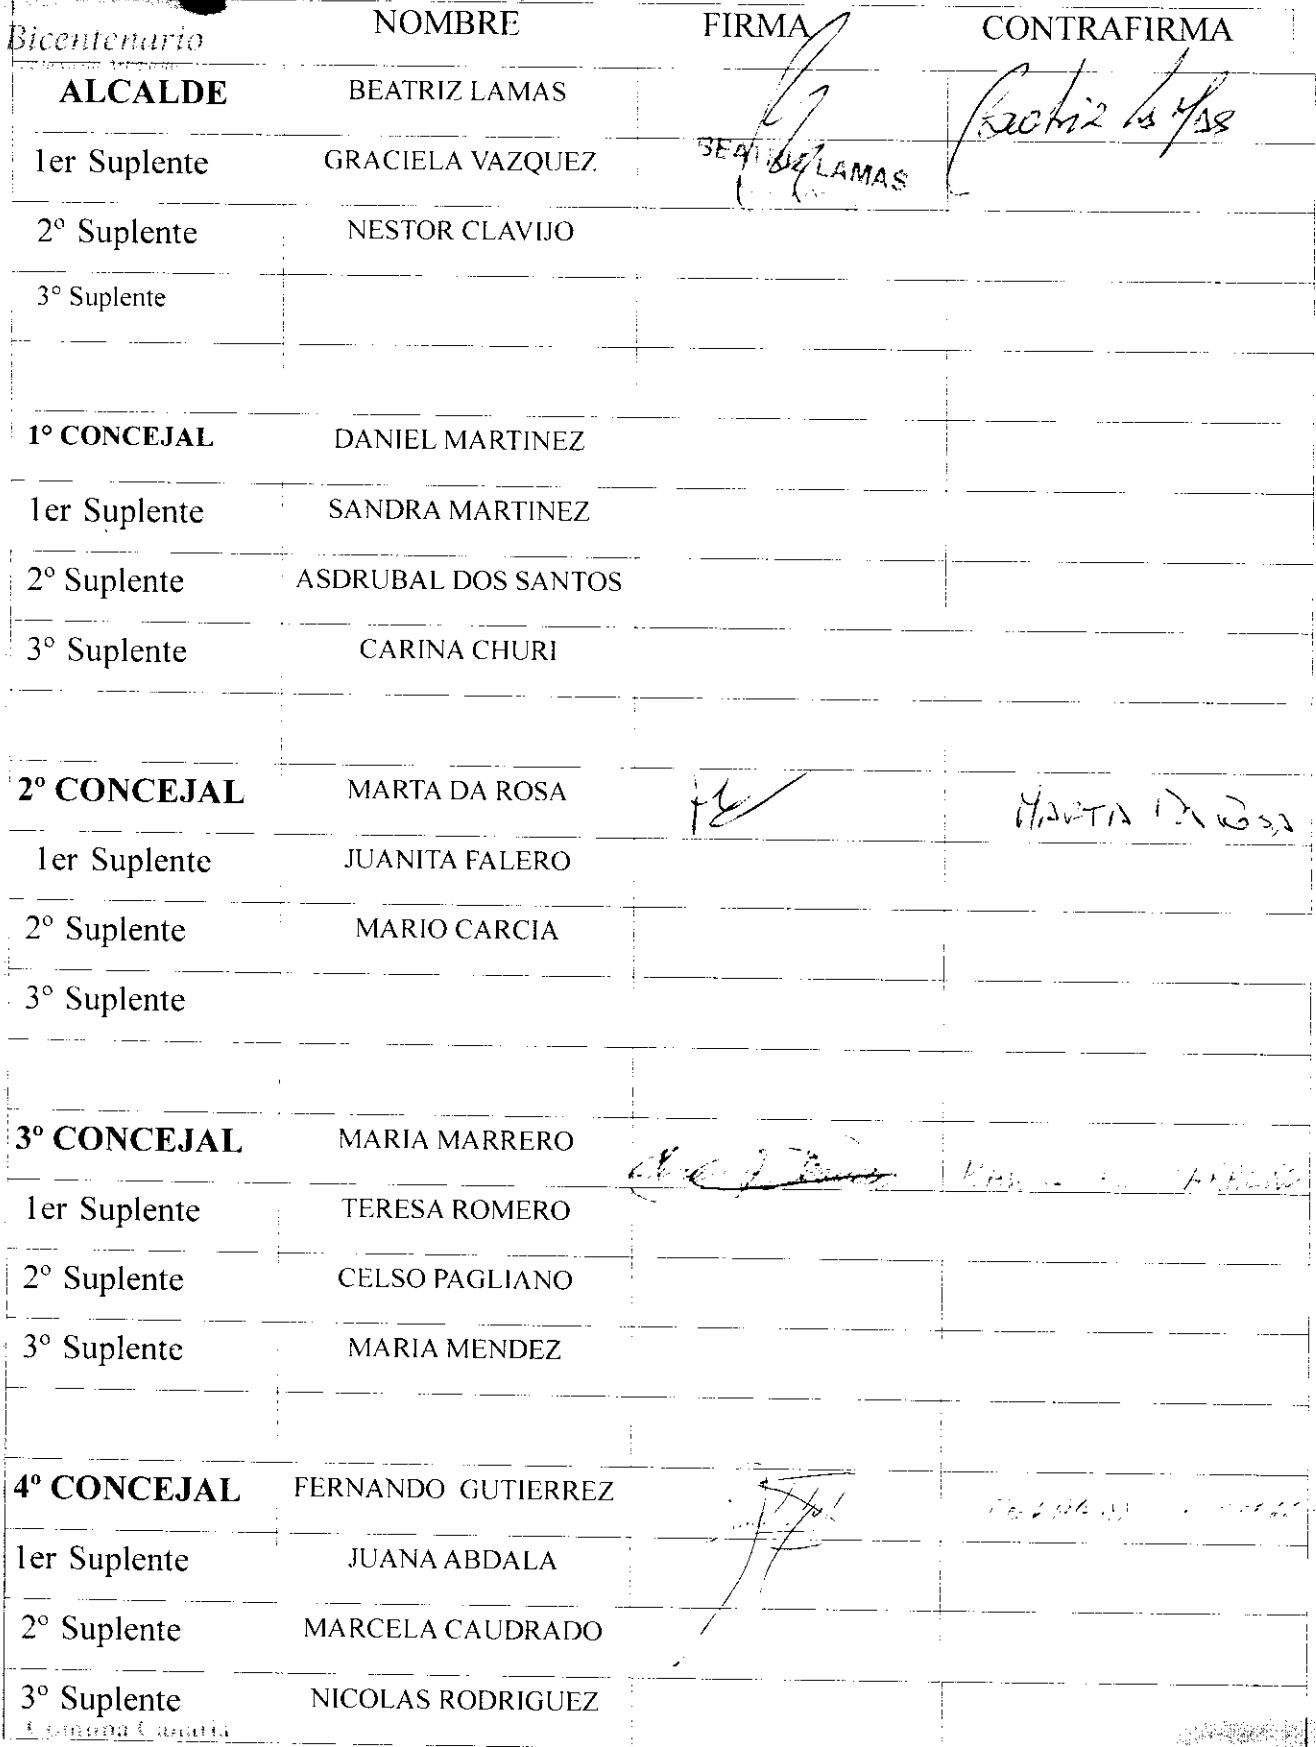 Bicentenario
NOMBRE FIRMA CONTRAFIRMA
ALCALDE BEATRIZ LAMAS Beatriz Lamas
1er Suplente GRACIELA VAZQUEZ BEATRIZ LAMAS
2º Suplente NESTOR CLAVIJO
3º Suplente
1º CONCEJAL DANIEL MARTINEZ
1er Suplente SANDRA MARTINEZ
2º Suplente ASDRUBAL DOS SANTOS
3º Suplente CARINA CHURI
2º CONCEJAL MARTA DA ROSA MARTA DA ROSA
1er Suplente JUANITA FALERO
2º Suplente MARIO CARCIA
3º Suplente
3º CONCEJAL MARIA MARRERO
1er Suplente TERESA ROMERO
2º Suplente CELSO PAGLIANO
3º Suplente MARIA MENDEZ
4º CONCEJAL FERNANDO GUTIERREZ
1er Suplente JUANA ABDALA
2º Suplente MARCELA CAUDRADO
3º Suplente NICOLAS RODRIGUEZ
Comuna Canaria